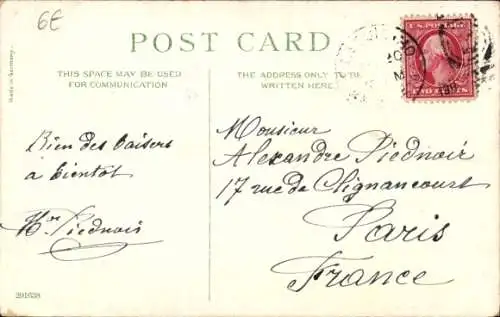 6€
POST CARD
THIS SPACE MAY BE USED
FOR COMMUNICATION
THE ADDRESS ONLY TO BE
WRITTEN HERE
Made in Germany
U.S. POSTAGE
TWO CENTS
Bien des baisers
à bientot
Piednoir
Monsieur
Alexandre Piednoir
17 rue de Clignancourt
Paris
France
201638